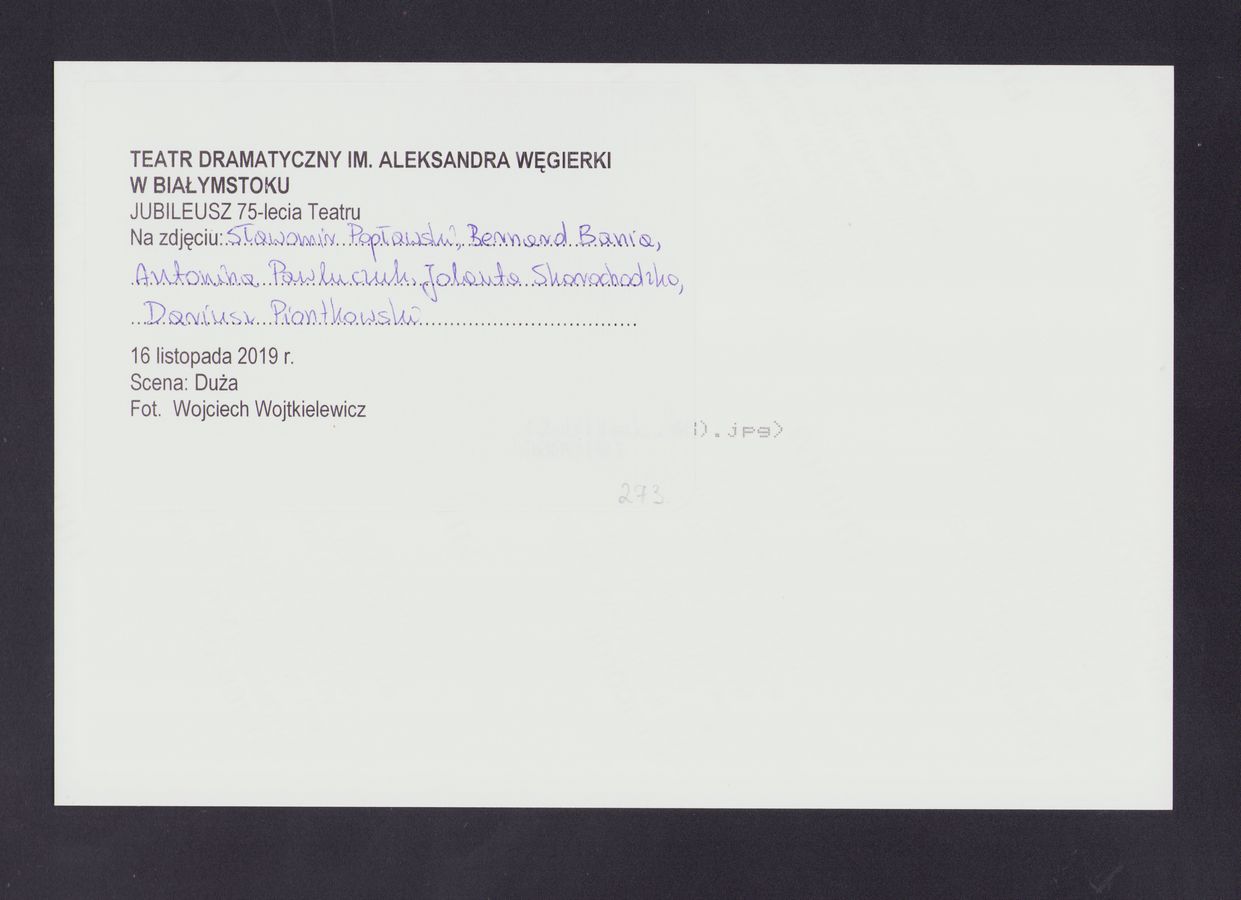 TEATR DRAMATYCZNY IM. ALEKSANDRA WĘGIERKI
W BIAŁYMSTOKU
JUBILEUSZ 75-lecia Teatru
Na zdjęciu: Sławomir Popławski, Bernard Bania,
Antonina Pawluczuk, Jolanta Skorochodzka,
Dariusz Piontkowski
16 listopada 2019 r.
Scena: Duża
Fot. Wojciech Wojtkielewicz
).jpg>
273